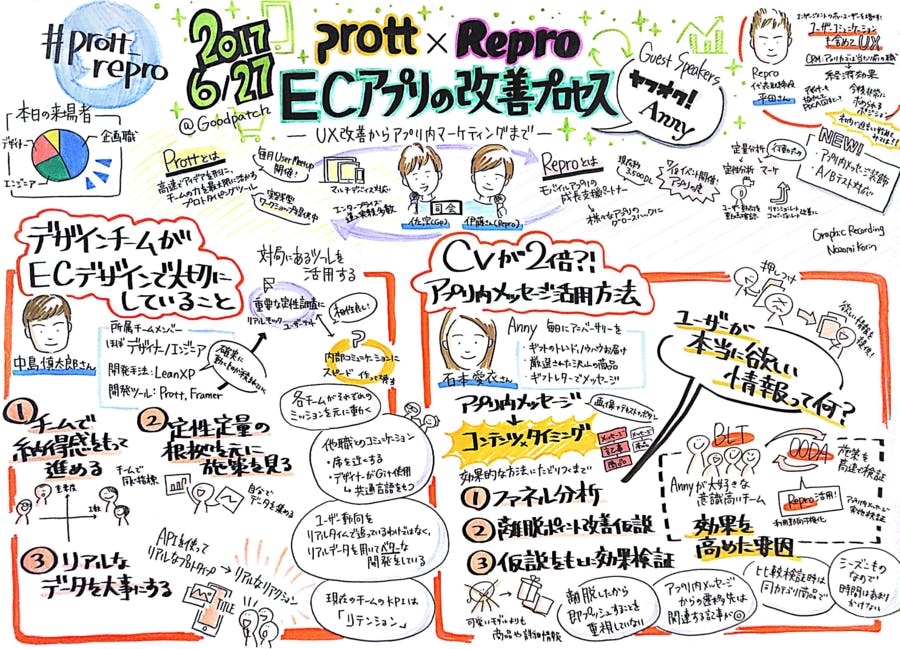 #prott_repro
2017
6/27
@Goodpatch
prott × Repro
ECアプリの改善プロセス
UX改善からアプリ内マーケティングまで
Guest Speakers
ヤフオク!
Anny
本日の来場者
デザイナー
企画職
エンジニア
Repro
代表取締役
平田さん
ユーザーコミュニケーション
も含めてUX
NEW!
・アプリ内メッセージ装飾
・A/Bテスト対応
Graphic Recording
Nozomi Korin
Prottとは
高速にアイデアを形に、
チームの力を最大限に活かる
プロトタイピングツール
毎月User Meetup
開催!
マルチデバイス対応
司会
佐宗(Gp)
伊藤さん(Repro)
Reproとは
モバイルアプリの
成長支援パートナー
定量分析
定性分析
マーケ
デザインチームが
ECデザインで大切に
していること
中島慎太郎さん
所属チームメンバー
ほぼデザイナー/エンジニア
開発手法:LeanXP
開発ツール:Prott, Framer
対局にあるツールを
活用する
重要な定性調査に
相性良し!
内部コミュニケーションに
①チームで
納得感をもって
進める
チームで
同じ指標
重要度
②定性定量の
根拠を元に
施策を見る
自分で
データを集める
③リアルな
データを大事にする
APIを使って
リアルなプロトタイプ
→リアルなリアクション
TITLE
各チームがそれぞれの
ミッションを元に動く
他職とのコミュニケーション
・席を近くする
・デザイナーがGit使用
↳共通言語をもつ
ユーザー動向を
リアルタイムで追っているわけではなく、
リアルデータを用いてベターな
開発をしている
現在のチームのKPIは
「リテンション」
CVが2倍?!
アプリ内メッセージ活用方法
石本愛衣さん
Anny 毎日にアニバーサリーを
・ギフトのトレンド、ノウハウお届け
・厳選された2万の商品
・ギフトレターでメッセージ
押しつけ
ユーザーが
本当に欲しい
情報って何?
アプリ内メッセージ
コンテンツ×タイミング
画像+テキスト+ボタン
効果的な方法にたどりつくまで
①ファネル分析
②離脱ポイント改善仮説
③仮説をもとに効果検証
可愛いモデルよりも
商品や詳細情報
離脱したから
即プッシュすることを
重視していない
アプリ内メッセージ
からの遷移先は
関連する記事が◎
BLT
Annyが大好きな
意識高いチーム
OODA
施策を
高速で検証
Repro活用!
効果を
高めた要因
比較検証時は
同カテゴリ商品で
シーズンもの
なので
時間はあまり
かけない